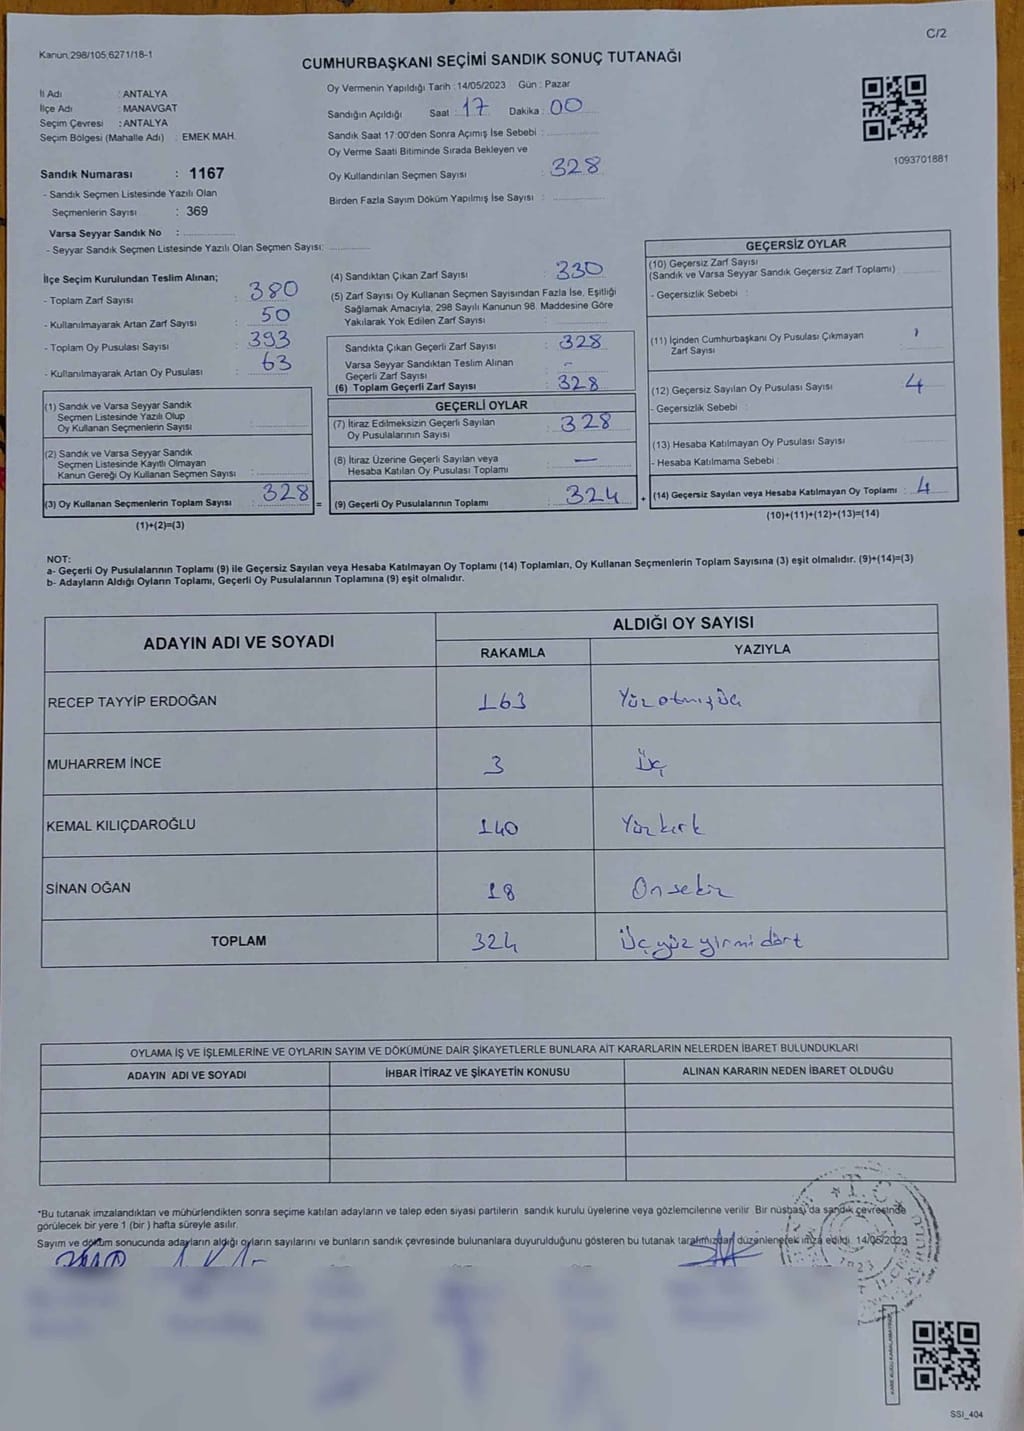 Kanun,298/105,6271/18-1
C/2
CUMHURBAŞKANI SEÇİMİ SANDIK SONUÇ TUTANAĞI
İl Adı : ANTALYA
İlçe Adı : MANAVGAT
Seçim Çevresi : ANTALYA
Seçim Bölgesi (Mahalle Adı) : EMEK MAH.
Sandık Numarası : 1167
- Sandık Seçmen Listesinde Yazılı Olan
Seçmenlerin Sayısı : 369
Varsa Seyyar Sandık No :
- Seyyar Sandık Seçmen Listesinde Yazılı Olan Seçmen Sayısı:
Oy Vermenin Yapıldığı Tarih : 14/05/2023 Gün : Pazar
Sandığın Açıldığı Saat : 17 Dakika : 00
Sandık Saat 17:00'den Sonra Açımış İse Sebebi :
Oy Verme Saati Bitiminde Sırada Bekleyen ve
Oy Kullandırılan Seçmen Sayısı : 328
Birden Fazla Sayım Döküm Yapılmış İse Sayısı :
1093701881
İlçe Seçim Kurulundan Teslim Alınan;
- Toplam Zarf Sayısı : 380
- Kullanılmayarak Artan Zarf Sayısı : 50
- Toplam Oy Pusulası Sayısı : 393
- Kullanılmayarak Artan Oy Pusulası : 63
(1) Sandık ve Varsa Seyyar Sandık
Seçmen Listesinde Yazılı Olup
Oy Kullanan Seçmenlerin Sayısı :
(2) Sandık ve Varsa Seyyar Sandık
Seçmen Listesinde Kayıtlı Olmayan
Kanun Gereği Oy Kullanan Seçmen Sayısı :
(3) Oy Kullanan Seçmenlerin Toplam Sayısı : 328 =
(1)+(2)=(3)
(4) Sandıktan Çıkan Zarf Sayısı : 330
(5) Zarf Sayısı Oy Kullanan Seçmen Sayısından Fazla İse, Eşitliği
Sağlamak Amacıyla, 298 Sayılı Kanunun 98. Maddesine Göre
Yakılarak Yok Edilen Zarf Sayısı :
Sandıkta Çıkan Geçerli Zarf Sayısı : 328
Varsa Seyyar Sandıktan Teslim Alınan
Geçerli Zarf Sayısı : -
(6) Toplam Geçerli Zarf Sayısı : 328
GEÇERLİ OYLAR
(7) İtiraz Edilmeksizin Geçerli Sayılan
Oy Pusulalarının Sayısı : 328
(8) İtiraz Üzerine Geçerli Sayılan veya
Hesaba Katılan Oy Pusulası Toplamı : —
(9) Geçerli Oy Pusulalarının Toplamı : 324 +
GEÇERSİZ OYLAR
(10) Geçersiz Zarf Sayısı
(Sandık ve Varsa Seyyar Sandık Geçersiz Zarf Toplamı) :
- Geçersizlik Sebebi :
(11) İçinden Cumhurbaşkanı Oy Pusulası Çıkmayan
Zarf Sayısı :
(12) Geçersiz Sayılan Oy Pusulası Sayısı : 4
- Geçersizlik Sebebi :
(13) Hesaba Katılmayan Oy Pusulası Sayısı :
- Hesaba Katılmama Sebebi :
(14) Geçersiz Sayılan veya Hesaba Katılmayan Oy Toplamı : 4
(10)+(11)+(12)+(13)=(14)
NOT:
a- Geçerli Oy Pusulalarının Toplamı (9) ile Geçersiz Sayılan veya Hesaba Katılmayan Oy Toplamı (14) Toplamları, Oy Kullanan Seçmenlerin Toplam Sayısına (3) eşit olmalıdır. (9)+(14)=(3)
b- Adayların Aldığı Oyların Toplamı, Geçerli Oy Pusulalarının Toplamına (9) eşit olmalıdır.
ADAYIN ADI VE SOYADI
ALDIĞI OY SAYISI
RAKAMLA YAZIYLA
RECEP TAYYİP ERDOĞAN 163 Yüz otmış üç
MUHARREM İNCE 3 üç
KEMAL KILIÇDAROĞLU 140 Yüz kırk
SİNAN OĞAN 18 On sekiz
TOPLAM 324 Üç yüz yirmi dört
OYLAMA İŞ VE İŞLEMLERİNE VE OYLARIN SAYIM VE DÖKÜMÜNE DAİR ŞİKAYETLERLE BUNLARA AİT KARARLARIN NELERDEN İBARET BULUNDUKLARI
ADAYIN ADI VE SOYADI İHBAR İTİRAZ VE ŞİKAYETİN KONUSU ALINAN KARARIN NEDEN İBARET OLDUĞU
*Bu tutanak imzalandıktan ve mühürlendikten sonra seçime katılan adayların ve talep eden siyasi partilerin sandık kurulu üyelerine veya gözlemcilerine verilir. Bir nüshası da sandık çevresinde
görülecek bir yere 1 (bir ) hafta süreyle asılır.
Sayım ve döküm sonucunda adayların aldığı oyların sayılarını ve bunların sandık çevresinde bulunanlara duyurulduğunu gösteren bu tutanak tarafımızdan düzenlenerek imza edildi. 14/05/2023
T.C.
1923
SSI_404